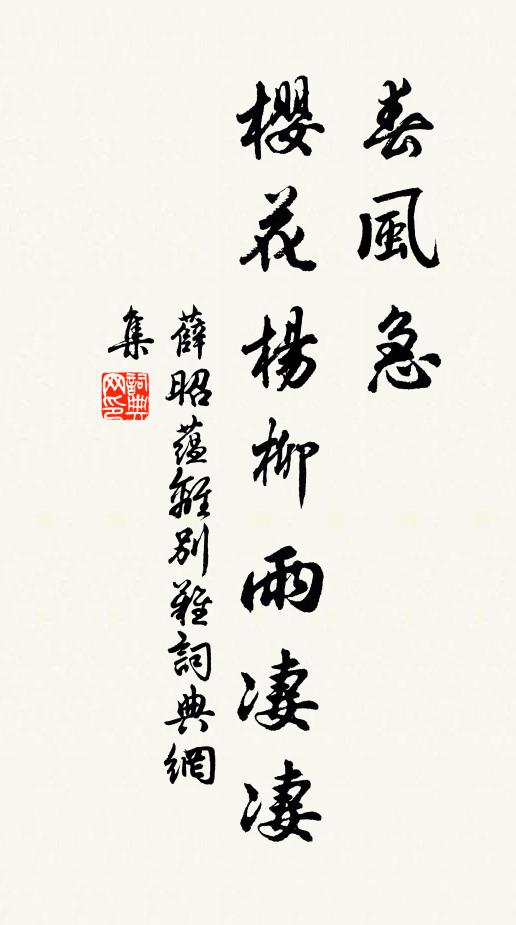 春風急
櫻花楊柳雨淒淒
薛昭蘊離別難詞典網
集
詞典
网印